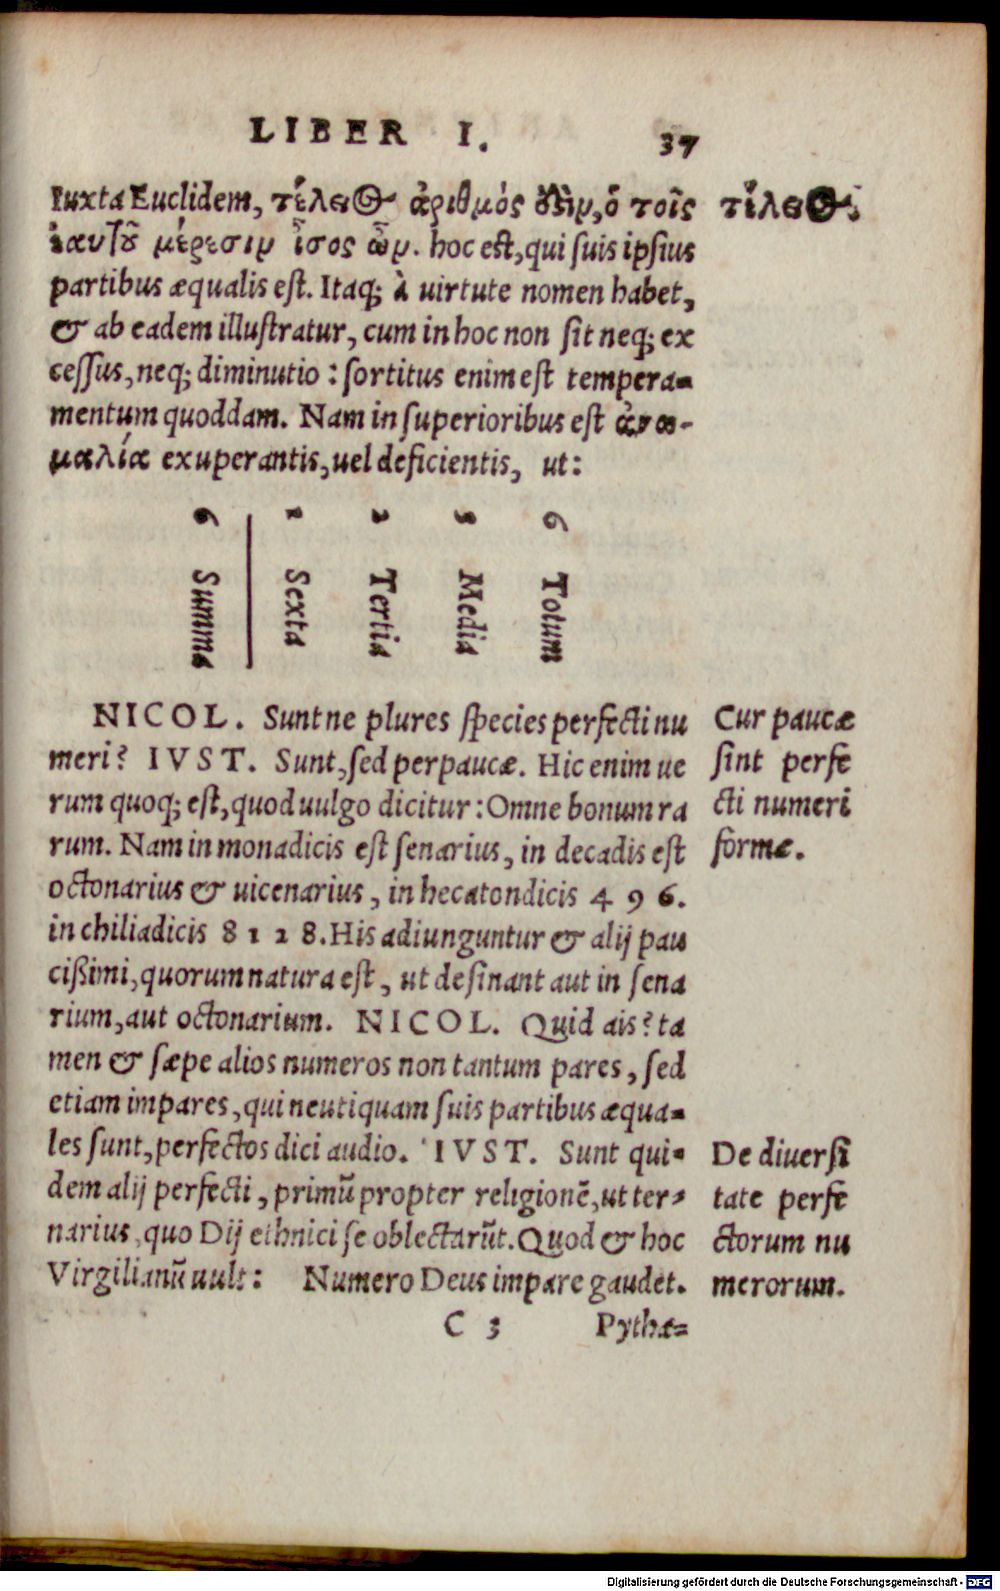 LIBER I. 37
Iuxta Euclidem, τέλειος ἀριθμός ἐστιν, ὁ τοῖς
τέλειος.
ἑαυτοῦ μέρεσιν ἴσος ὤν. hoc est, qui suis ipsius
partibus æqualis est. Itaq; à uirtute nomen habet,
& ab eadem illustratur, cum in hoc non sit neq; ex
cessus, neq; diminutio: sortitus enim est tempera-
mentum quoddam. Nam in superioribus est ἀνω-
μαλία exuperantis, uel deficientis, ut:
6 Totum
3 Media
2 Tertia
1 Sexta
6 Summa
NICOL. Suntne plures species perfecti nu
meri? IVST. Sunt, sed perpaucæ. Hic enim ue
rum quoq; est, quod uulgo dicitur: Omne bonum ra
rum. Nam in monadicis est senarius, in decadis est
octonarius & uicenarius, in hecatondicis 4 9 6.
in chiliadicis 8 1 2 8. His adiunguntur & alij pau
cißimi, quorum natura est, ut desinant aut in sena
rium, aut octonarium. NICOL. Quid ais? ta
men & sæpe alios numeros non tantum pares, sed
etiam impares, qui neutiquam suis partibus æqua-
les sunt, perfectos dici audio. IVST. Sunt qui-
dem alij perfecti, primũ propter religionẽ, ut ter-
narius, quo Dij ethnici se oblectarũt. Quod & hoc
Virgilianũ uult: Numero Deus impare gaudet.
Cur paucæ
sint perfe
cti numeri
formæ.
De diuersi
tate perfe
ctorum nu
merorum.
C 3 Pythæ-
Digitalisierung gefördert durch die Deutsche Forschungsgemeinschaft - DFG